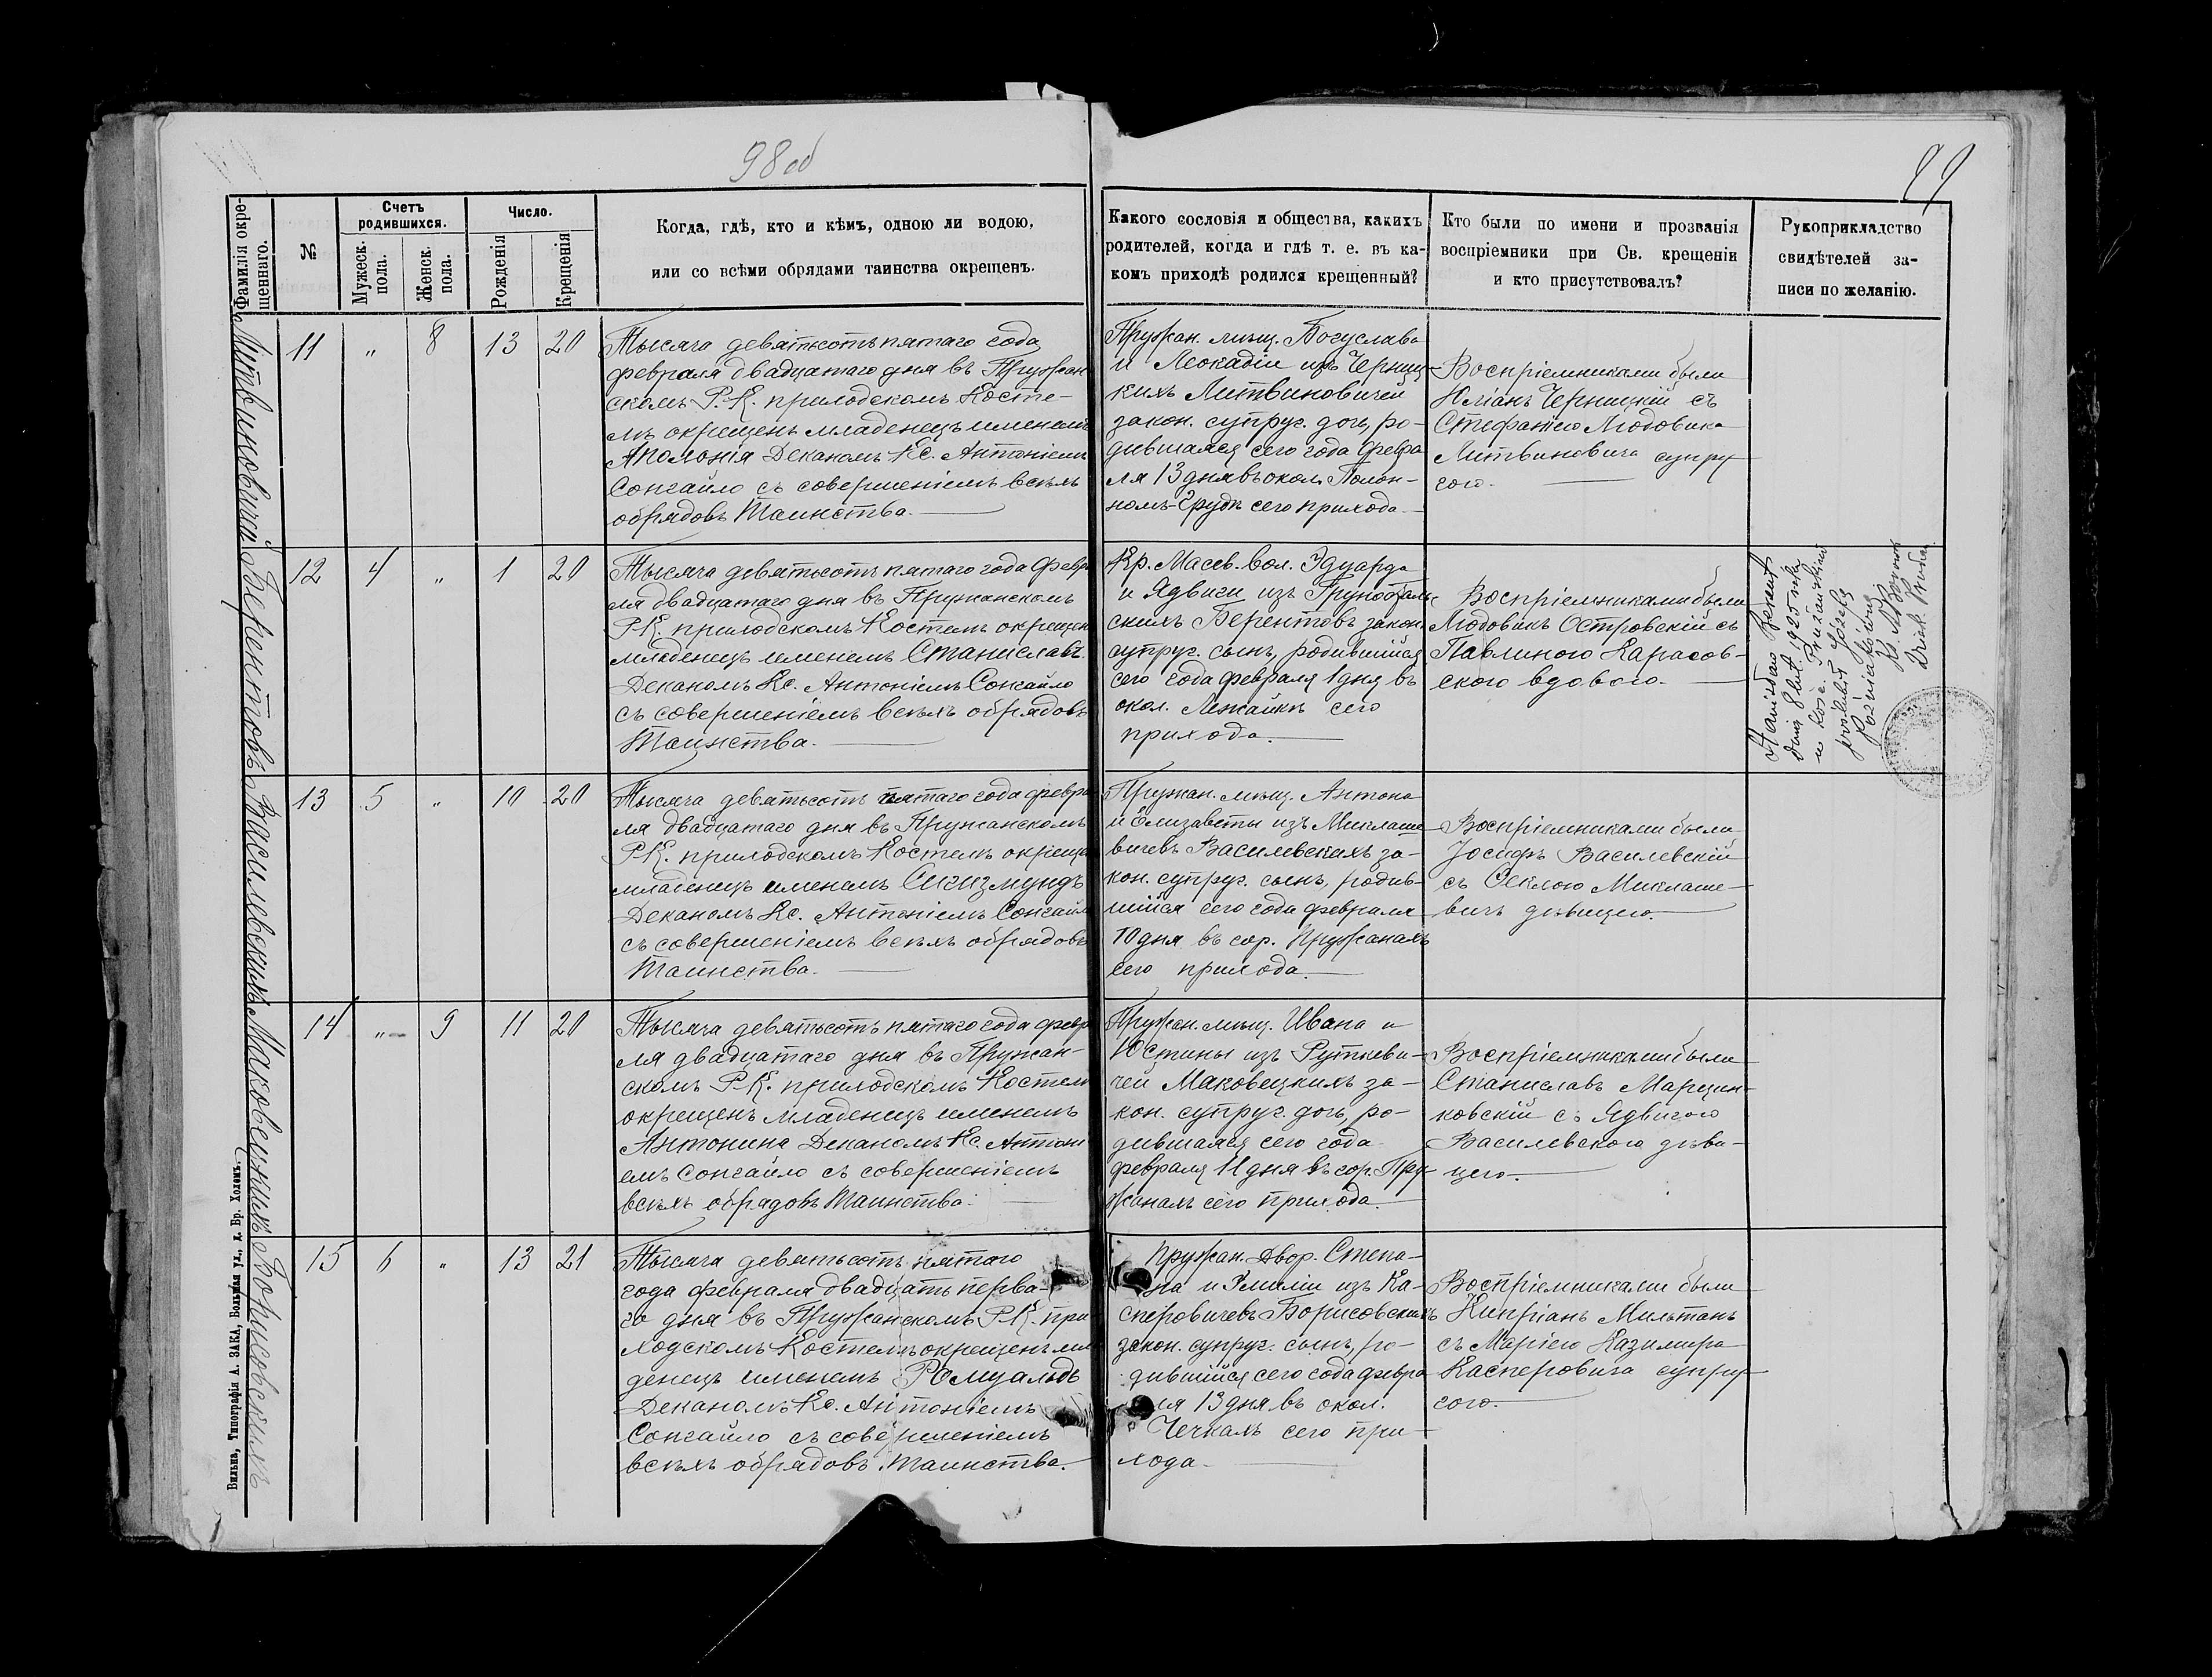 98 об
99
Фамилія окре-
щеннаго.
№
Счетъ
родившихся.
Мужеск.
пола.
Женск.
пола.
Число.
Рожденія
Крещенія
Когда, гдѣ, кто и кѣмъ, одною ли водою,
или со всѣми обрядами таинства окрещенъ.
Какого сословія и общества, какихъ
родителей, когда и гдѣ т. е. въ ка-
комъ приходѣ родился крещенный?
Кто были по имени и прозванія
воспріемники при Св. крещеніи
и кто присутствовалъ?
Рукоприкладство
свидѣтелей за-
писи по желанію.
Литвиновичей
11 " 8 13 20
Тысяча девятьсотъ пятаго года
февраля двадцатаго дня въ Пружан
скомъ Р. К. приходскомъ Косте-
лѣ окрещенъ младенецъ именемъ
Аполонія Деканомъ Кс. Антоніемъ
Сонгайло съ совершеніемъ всѣхъ
обрядовъ Таинства.
Пружан. мѣщ. Богуслава
и Леокадіи изъ Черниц-
кихъ Литвиновичей
закон. супруг. дочь, ро-
дившаяся сего года Февра
ля 13 дня въ окол. Полон-
номъ-Грудѣ сего прихода.
Воспріемниками были
Юліанъ Черницкій съ
Стефаніею Людовика
Литвиновича супру
гою.
Берентовъ
12 4 " 1 20
Тысяча девятьсотъ пятаго года Февра
ля двадцатаго дня въ Пружанскомъ
Р.К. приходскомъ Костелѣ окрещенъ
младенецъ именемъ Станиславъ
Деканомъ Кс. Антоніемъ Сонгайло
съ совершеніемъ всѣхъ обрядовъ
Таинства.
Кр. Масев. вол. Эдуарда
и Ядвиги изъ
скихъ Берентовъ закон.
супруг. сынъ, родившійся
сего года февраля 1 дня въ
окол. сего
прихода.
Воспріемниками были
Людовикъ Островскій съ
Павлиною Карасов-
скою вдовою.
Stanisław Berent
dnia 8 lut. 1925 roku
w kośc. Prużańskim
poślubił Józefę
Ks.
Василевскихъ
13 5 " 10 20
Тысяча девятьсотъ пятаго года февра
ля двадцатаго дня въ Пружанскомъ
Р.К. приходскомъ Костелѣ окрещенъ
младенецъ именемъ Сигизмундъ
Деканомъ Кс. Антоніемъ Сонгайло
съ совершеніемъ всѣхъ обрядовъ
Таинства.
Пружан. мѣщ. Антона
и Елизаветы изъ Миклаше
вичевъ Василевскихъ за-
кон. супруг. сынъ, родив-
шійся сего года февраля
10 дня въ гор. Пружанахъ
сего прихода.
Воспріемниками были
Іосифъ Василевскій
съ Ѳеклою Миклаше-
вичъ дѣвицею.
Маковецкихъ
14 " 9 11 20
Тысяча девятьсотъ пятаго года февра
ля двадцатаго дня въ Пружан-
скомъ Р.К. приходскомъ Костелѣ
окрещенъ младенецъ именемъ
Антонина Деканомъ Кс. Антоні
емъ Сонгайло съ совершеніемъ
всѣхъ обрядовъ Таинства.
Пружан. мѣщ. Ивана и
Юстины изъ Руткеви-
чей Маковецкихъ за-
кон. супруг. дочь, ро-
дившаяся сего года
февраля 11 дня въ гор. Пру-
жанахъ сего прихода.
Воспріемниками были
Станиславъ Марцин-
ковскій съ Ядвигою
Василевскою дѣви-
цею.
Борисовскихъ
15 6 " 13 21
Тысяча девятьсотъ пятаго
года февраля двадцать перва-
го дня въ Пружанскомъ Р.К. при
ходскомъ Костелѣ окрещенъ мла
денецъ именемъ Ромуальдъ
Деканомъ Кс. Антоніемъ
Сонгайло съ совершеніемъ
всѣхъ обрядовъ Таинства.
Пружан. Двор. Степа-
на и Эмиліи изъ Ка-
сперовичевъ Борисовскихъ
закон. супруг. сынъ, ро-
дившійся сего года февра
ля 13 дня въ окол.
Чечкахъ сего при-
хода.
Воспріемниками были
Кипріанъ Мильтанъ
съ Маріею Казимира
Касперовича супру-
гою.
Вильна, Типографія А. ЗАКА, Большая ул., д. Бр. Холемъ.